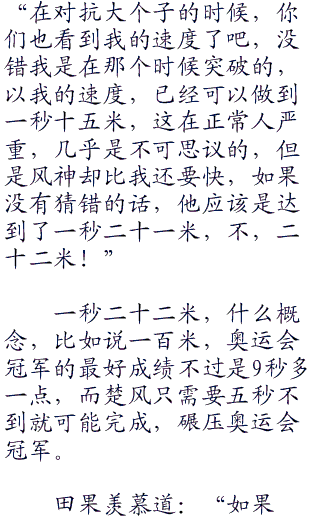 “在对抗大个子的时候，你
们也看到我的速度了吧，没
错我是在那个时候突破的，
以我的速度，已经可以做到
一秒十五米，这在正常人严
重，几乎是不可思议的，但
是风神却比我还要快，如果
没有猜错的话，他应该是达
到了一秒二十一米，不，二
十二米！”
一秒二十二米，什么概
念，比如说一百米，奥运会
冠军的最好成绩不过是9秒多
一点，而楚风只需要五秒不
到就可能完成，碾压奥运会
冠军。
田果羡慕道：“如果